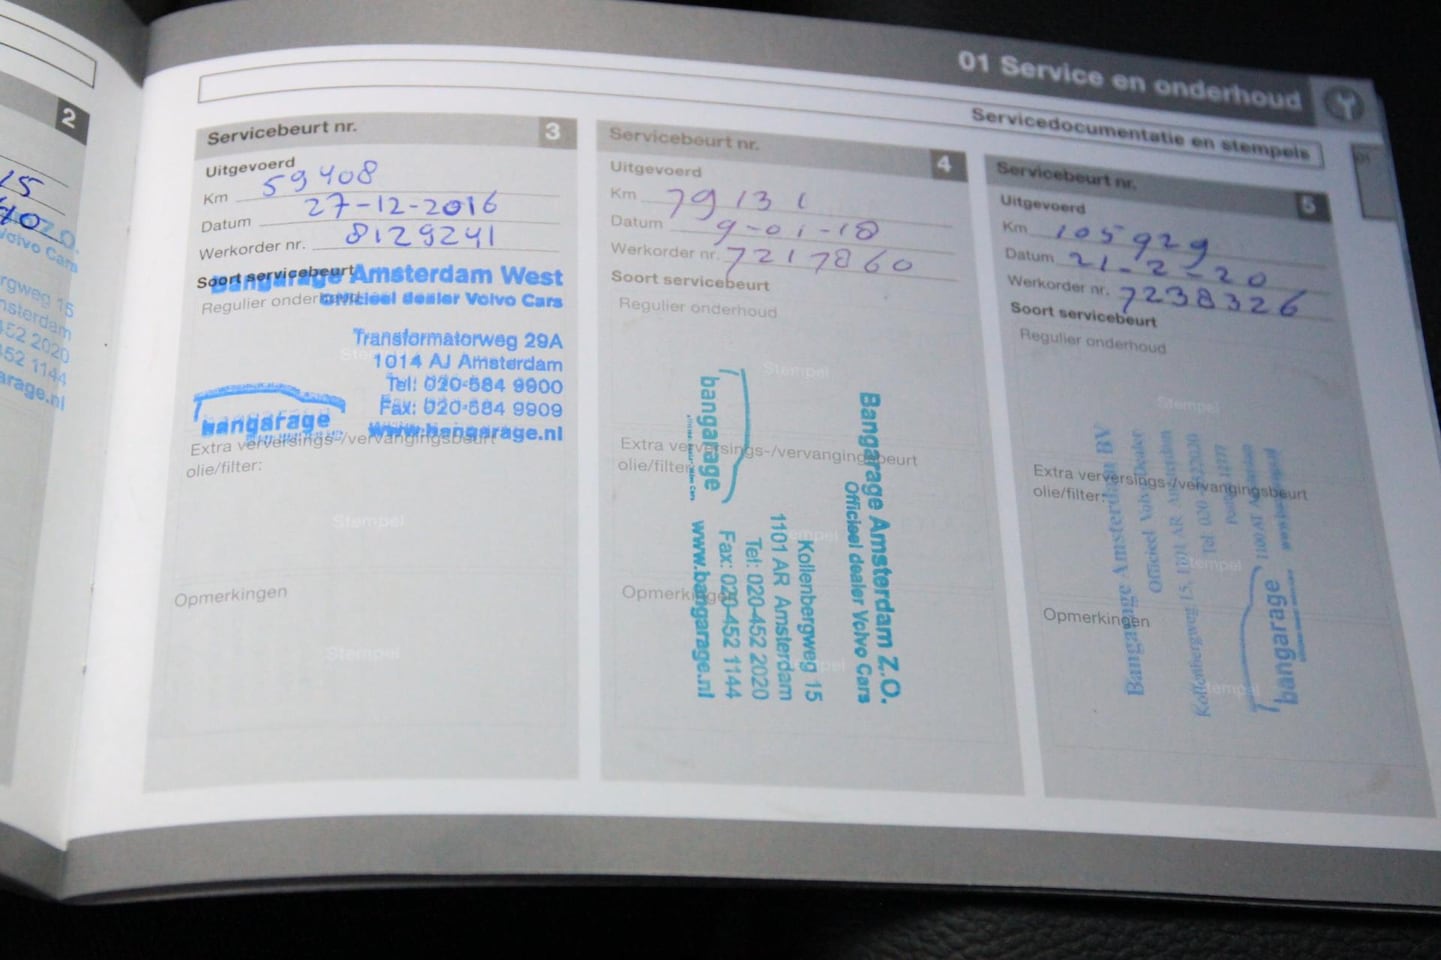 01 Service en onderhoud
Servicedocumentatie en stempels
2
15
40
Z.O.
Volvo Cars
rgweg 15
msterdam
452 2020
452 1144
arage.nl
Servicebeurt nr. 3
Uitgevoerd
Km 59408
Datum 27-12-2016
Werkorder nr. 8129241
Soort servicebeurt
Bangarage Amsterdam West
Regulier onderhoud
Officieel dealer Volvo Cars
Transformatorweg 29A
1014 AJ Amsterdam
Tel: 020-584 9900
Fax: 020-584 9909
bangarage
www.bangarage.nl
Extra verversings-/vervangingsbeurt
olie/filter:
Stempel
Opmerkingen
Stempel
Servicebeurt nr. 4
Uitgevoerd
Km 79131
Datum 9-01-18
Werkorder nr. 7217860
Soort servicebeurt
Regulier onderhoud
Stempel
Extra verversings-/vervangingsbeurt
olie/filter:
Opmerkingen
Bangarage Amsterdam Z.O.
Officieel dealer Volvo Cars
Kollenbergweg 15
1101 AR Amsterdam
Tel: 020-452 2020
Fax: 020-452 1144
www.bangarage.nl
bangarage
Servicebeurt nr. 5
Uitgevoerd
Km 105929
Datum 21-2-20
Werkorder nr. 7238326
Soort servicebeurt
Regulier onderhoud
Stempel
Extra verversings-/vervangingsbeurt
olie/filter:
Stempel
Opmerkingen
Stempel
Bangarage Amsterdam BV
Officieel Volvo Dealer
Kollenbergweg 15, 1101 AR Amsterdam
Tel: 020
1100 AT Amsterdam
bangarage